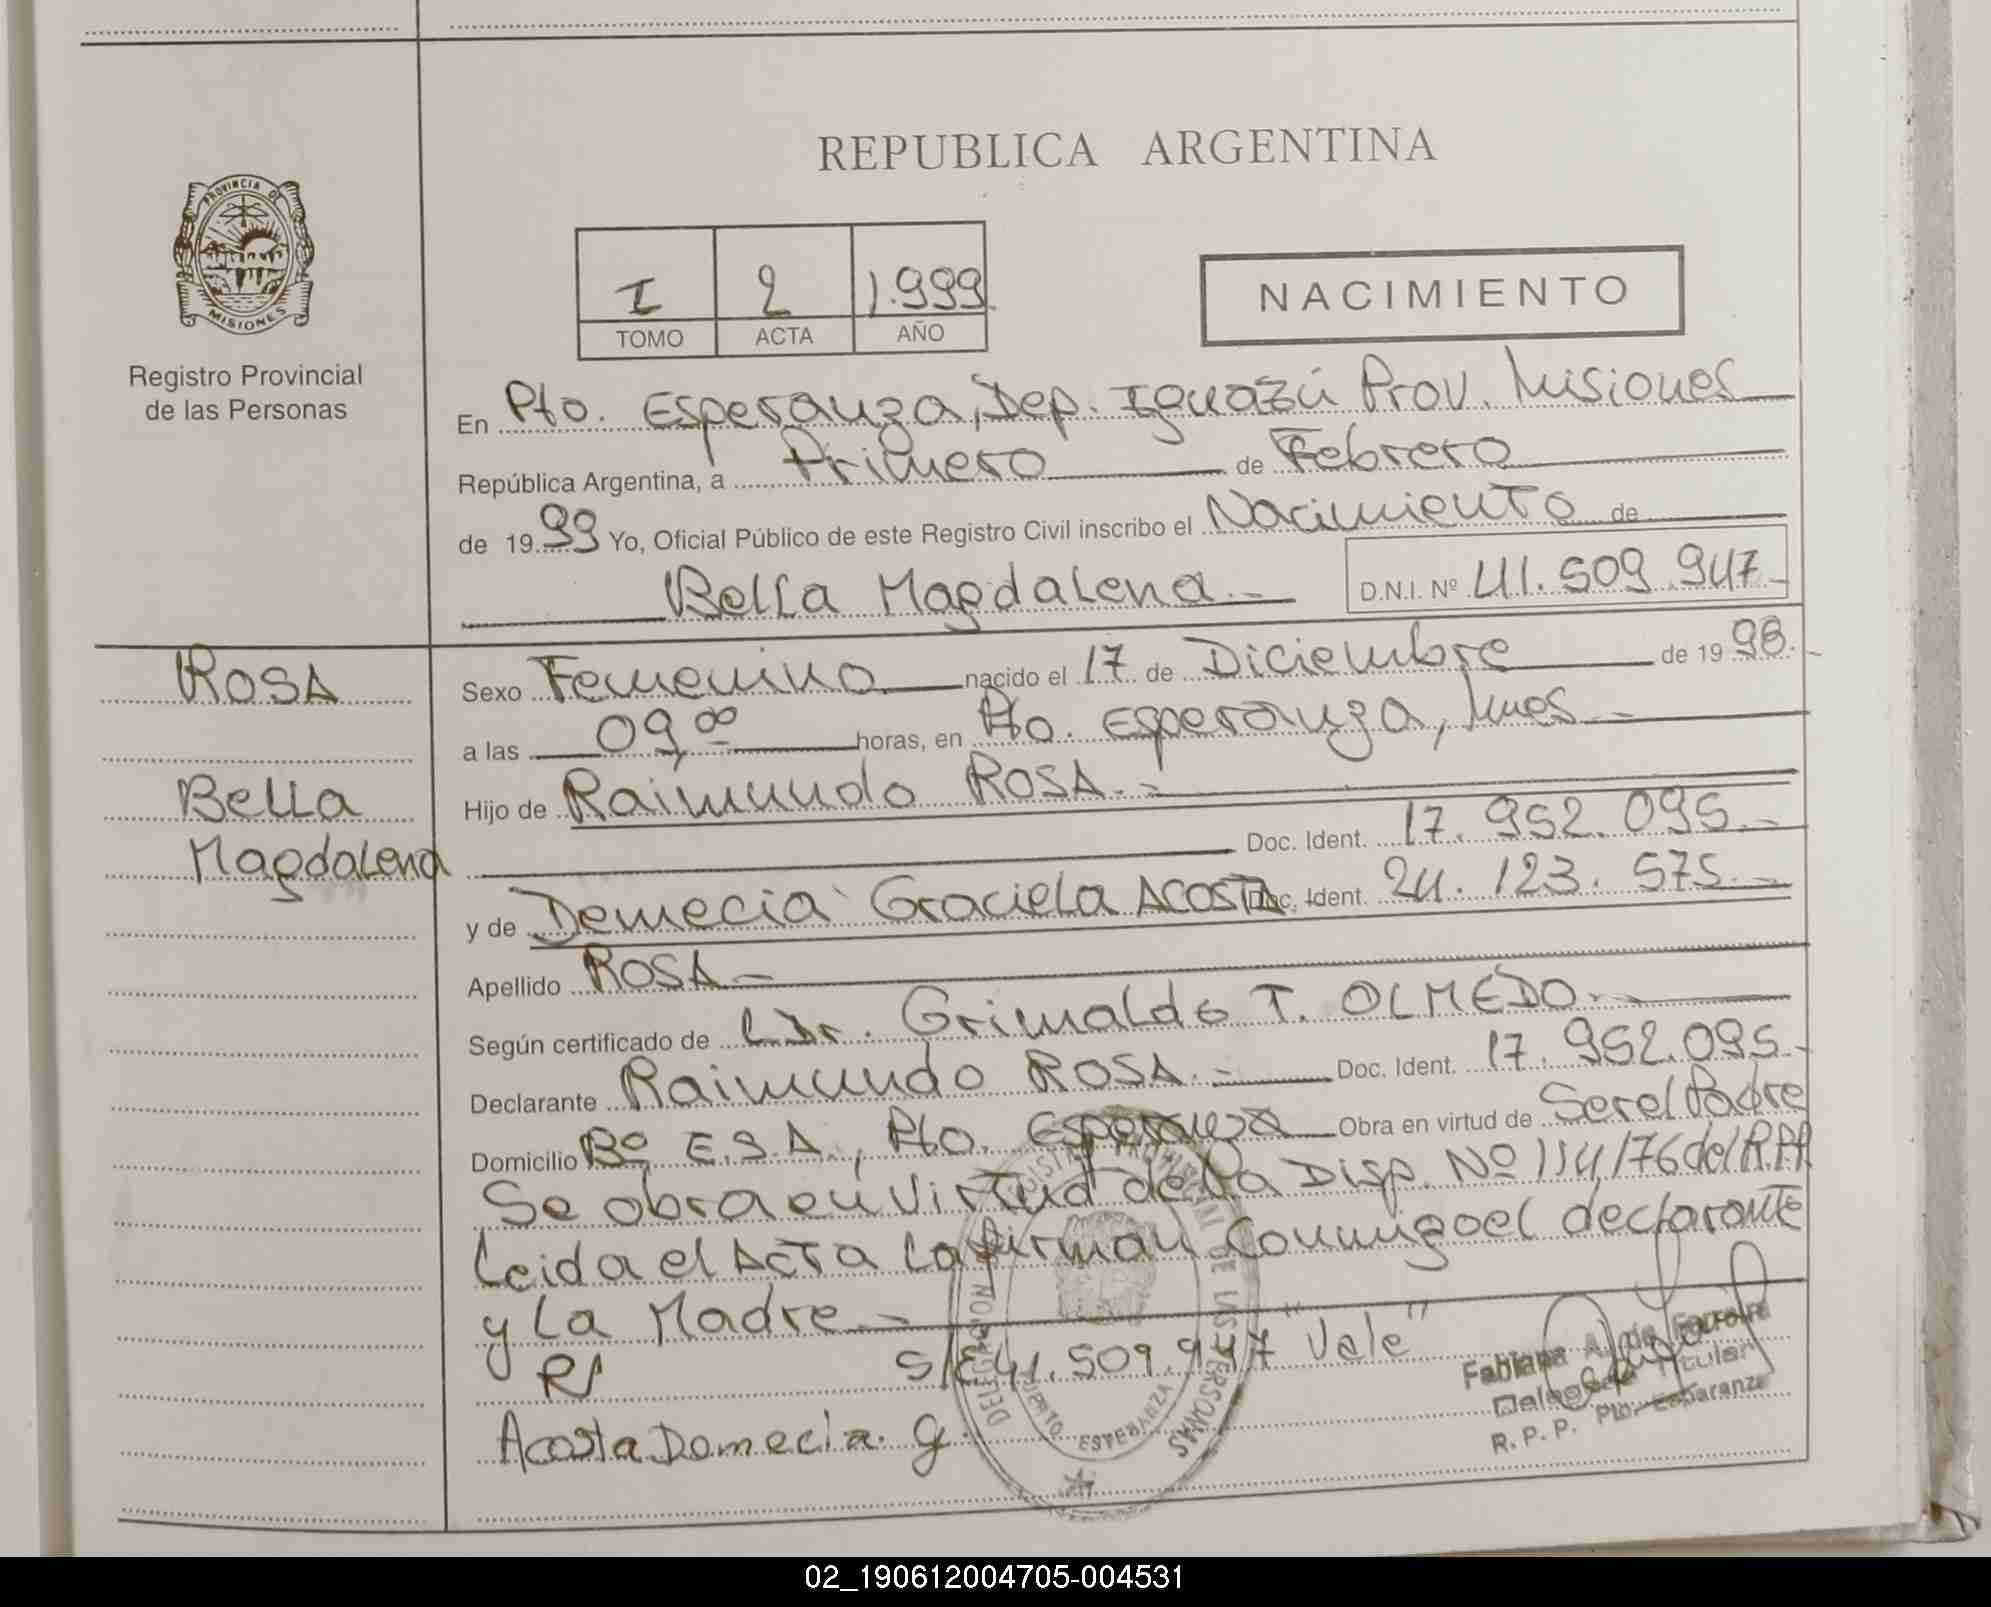 REPUBLICA ARGENTINA
PROVINCIA DE
MISIONES
Registro Provincial
de las Personas
I 2 1.999
TOMO ACTA AÑO
NACIMIENTO
En Pto. Esperanza, Dep. Iguazú Prov. Misiones
República Argentina, a Primero de Febrero
de 19 99 Yo, Oficial Público de este Registro Civil inscribo el Nacimiento de
Bella Magdalena D.N.I. Nº 41.509.947
ROSA
Bella
Magdalena
Sexo Femenino nacido el 17 de Diciembre de 19 98.
a las 09,00 horas, en Pto. Esperanza, Mnes
Hijo de Raimundo ROSA
Doc. Ident. 17.952.095
y de Demecia Graciela ACOSTA Doc. Ident. 24.123.575
Apellido ROSA
Según certificado de Dr. Grimaldo T. OLMEDO
Declarante Raimundo ROSA Doc. Ident. 17.952.095
Domicilio Bº E.S.A, Pto. Esperanza Obra en virtud de Ser el Padre
Se obra en Virtud de la Disp. Nº 114/76 del R.P.P
Leida el ACTA la firman Conmigo el declarante
y La Madre
S/E 41.509.947 "Vale"
Acosta Domecia. g.
Fabiana A. de
Delegada Titular
R.P.P. Pto. Esperanza
02_190612004705-004531